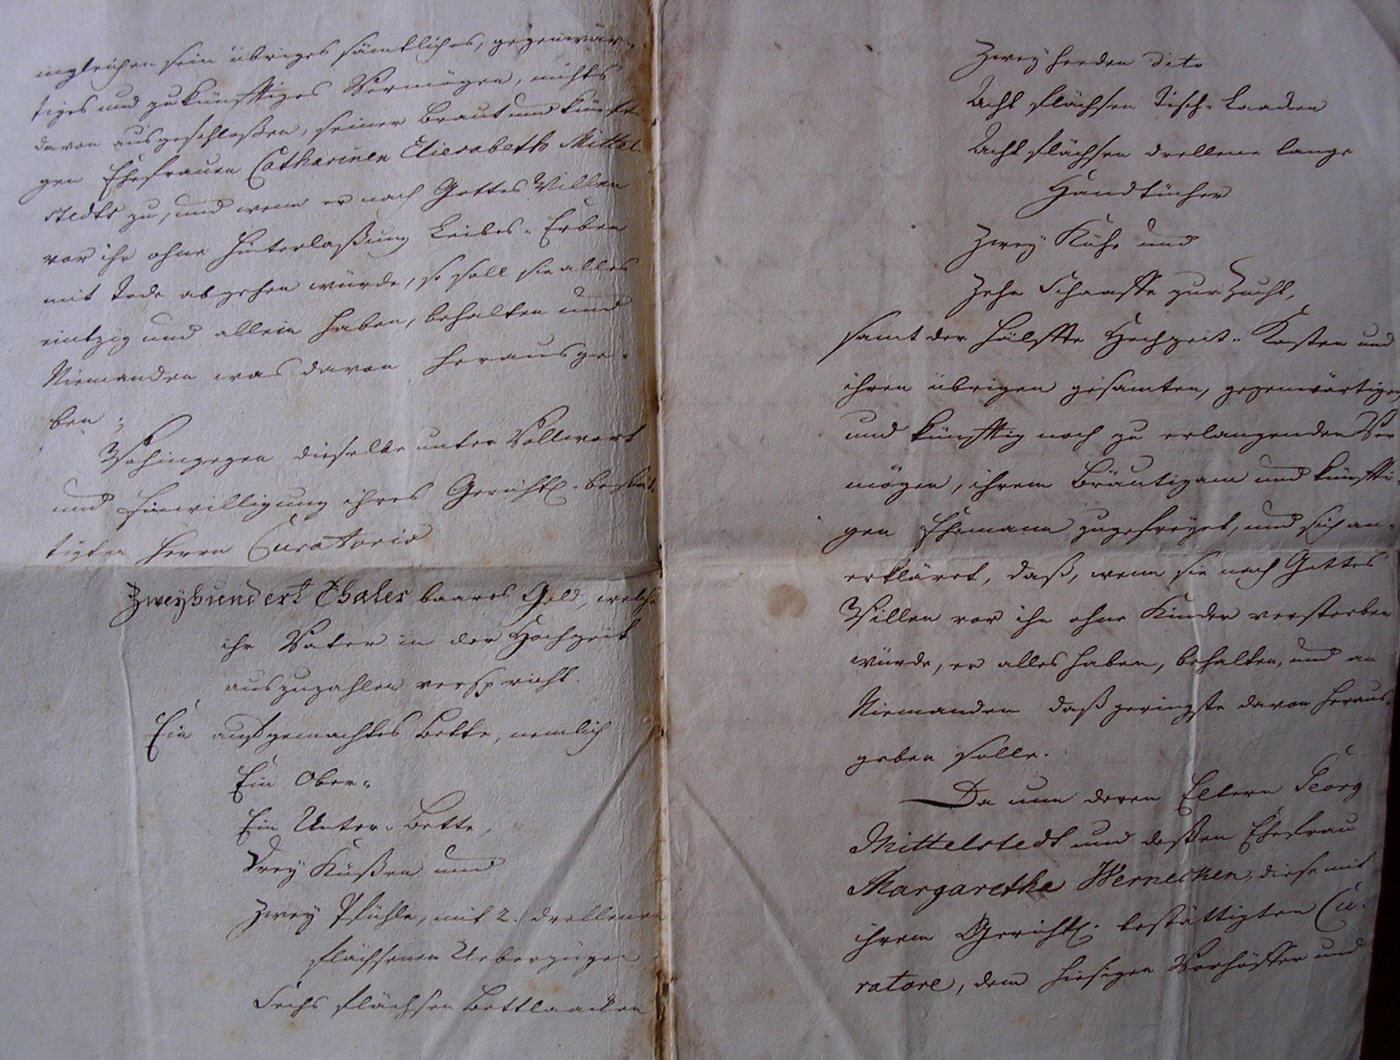 ingleichen sein übriges sämtliches, gegenwär-
tiges und zukünfftiges Vermögen, nichts
davon ausgeschloßen, seiner Braut und künfti-
gen Ehefrauen Catharinen Elisabeth Mittel-
stedts zu, und wenn er nach Gottes Willen
vor ihr ohne Hinterlaßung Leibes-Erben
mit Tode abgehen würde, so soll sie alles
eintzig und allein haben, behalten und
Niemanden was davon herausge-
ben;
Wohingegen dieselbe unter Vollwort
und Einwilligung ihres Gerichtl. bestät-
tigten Herrn Curatoris
Zweyhundert Thaler baares Geld, welche
ihr Vater in der Hochzeit
auszuzahlen verspricht.
Ein außgemachtes Bette, nemlich
Ein Ober-
Ein Unter-Bette,
Drey Küßen und
Zwey Pfühle, mit 2. drellenen
flächsenen Ueberzügen
Sechs flächsen Bettlaacken
Zwey heeden dito
Acht flächsen Tisch-Laaken
Acht flächsen drellene lange
Handtücher
Zwey Kühe und
Zehn Schaaffe zur Zucht,
samt der Hälffte Hochzeit-Kosten und
ihren übrigen gesamten, gegenwärtigen
und künfftig noch zu erlangenden Ver
mögen, ihrem Bräutigam und künffti-
gen Ehemann zugefreyet, und sich an-
erkläret, daß, wenn sie nach Gottes
Willen vor ihn ohne Kinder versterben
würde, er alles haben, behalten, und an
Niemanden daß geringste davon heraus-
geben solle.
Da nun deren Eltern Georg
Mittelstedt und deßen Ehefrau
Margaretha Wernecken, diese mit
ihrem Gerichtl. bestättigten Cu-
ratore, dem hiesigen Vorsteher und